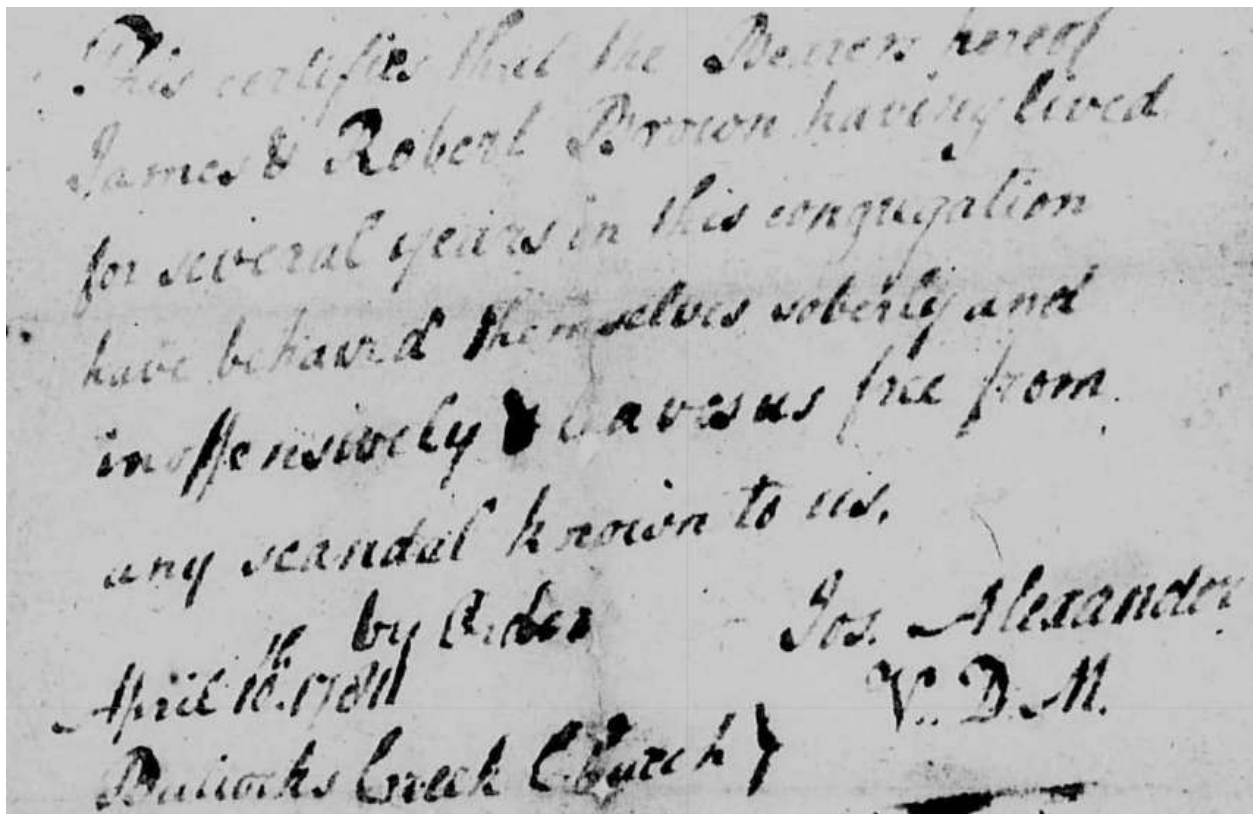 This certifies that the Bearers hereof
James & Robert Brown having lived
for several years in this congregation
have behav'd themselves soberly and
inoffensively & leaves us free from
any scandal known to us.
by Order Jos. Alexander
April 10th. V. D. M.
Bullocks Creek Church }